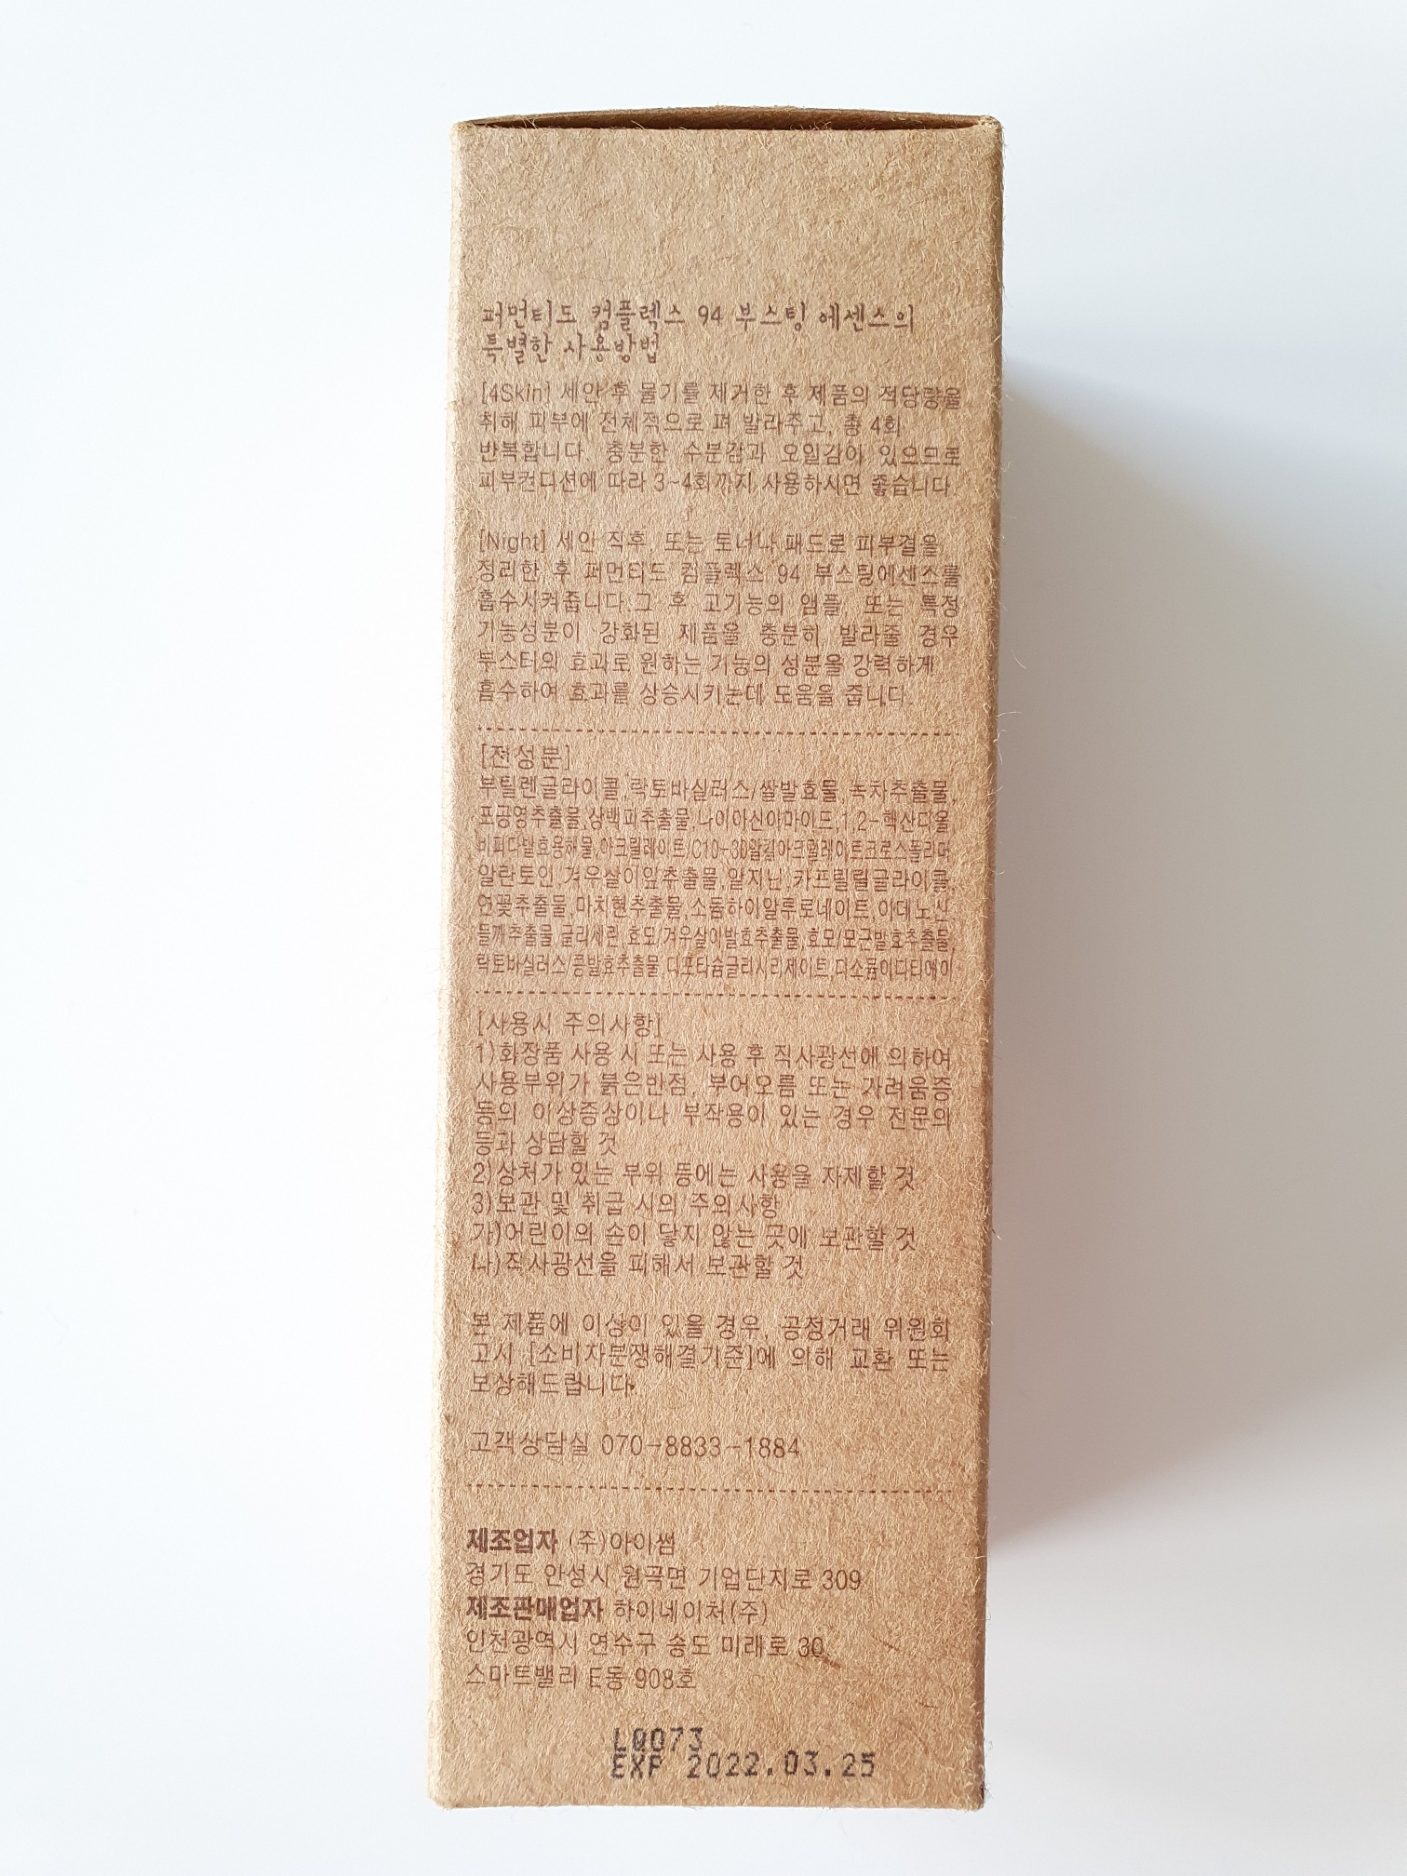 퍼먼티드 컴플렉스 94 부스팅 에센스의
특별한 사용방법
[4Skin] 세안 후 물기를 제거한 후 제품의 적당량을
취해 피부에 전체적으로 펴 발라주고, 총 4회
반복합니다. 충분한 수분감과 오일감이 있으므로
피부컨디션에 따라 3~4회까지 사용하시면 좋습니다.
[Night] 세안 직후, 또는 토너나 패드로 피부결을
정리한 후 퍼먼티드 컴플렉스 94 부스팅에센스를
흡수시켜줍니다.그 후 고기능의 앰플 또는 특정
기능성분이 강화된 제품을 충분히 발라줄 경우
부스터의 효과로 원하는 기능의 성분을 강력하게
흡수하여 효과를 상승시키는데 도움을 줍니다.
[전성분]
부틸렌글라이콜,락토바실러스/쌀발효물,녹차추출물,
포공영추출물,상백피추출물,나이아신아마이드,1,2-헥산디올
비피다발효용해물,아크릴레이트/C10-30알킬아크릴레이트코로스폴리머
알란토인,겨우살이잎추출물,알지닌,카프릴릴글라이콜,
연꽃추출물,마치현추출물,소듐하이알루로네이트,아데노신
들깨추출물,글리세린,효모/겨우살이발효추출물,효모/모근발효추출물,
락토바실러스/콩발효추출물,디포타슘글리시리제이트,디소듐이디티에이
[사용시 주의사항]
1)화장품 사용 시 또는 사용 후 직사광선에 의하여
사용부위가 붉은반점, 부어오름 또는 가려움증
등의 이상증상이나 부작용이 있는 경우 전문의
등과 상담할 것
2)상처가 있는 부위 등에는 사용을 자제할 것
3)보관 및 취급 시의 주의사항
가)어린이의 손이 닿지 않는 곳에 보관할 것
나)직사광선을 피해서 보관할 것
본 제품에 이상이 있을 경우, 공정거래 위원회
고시 [소비자분쟁해결기준]에 의해 교환 또는
보상해드립니다.
고객상담실 070-8833-1884
제조업자 (주)아이썸
경기도 안성시 원곡면 기업단지로 309
제조판매업자 하이네이처(주)
인천광역시 연수구 송도 미래로 30,
스마트밸리 E동 908호
L0073
EXP 2022.03.25